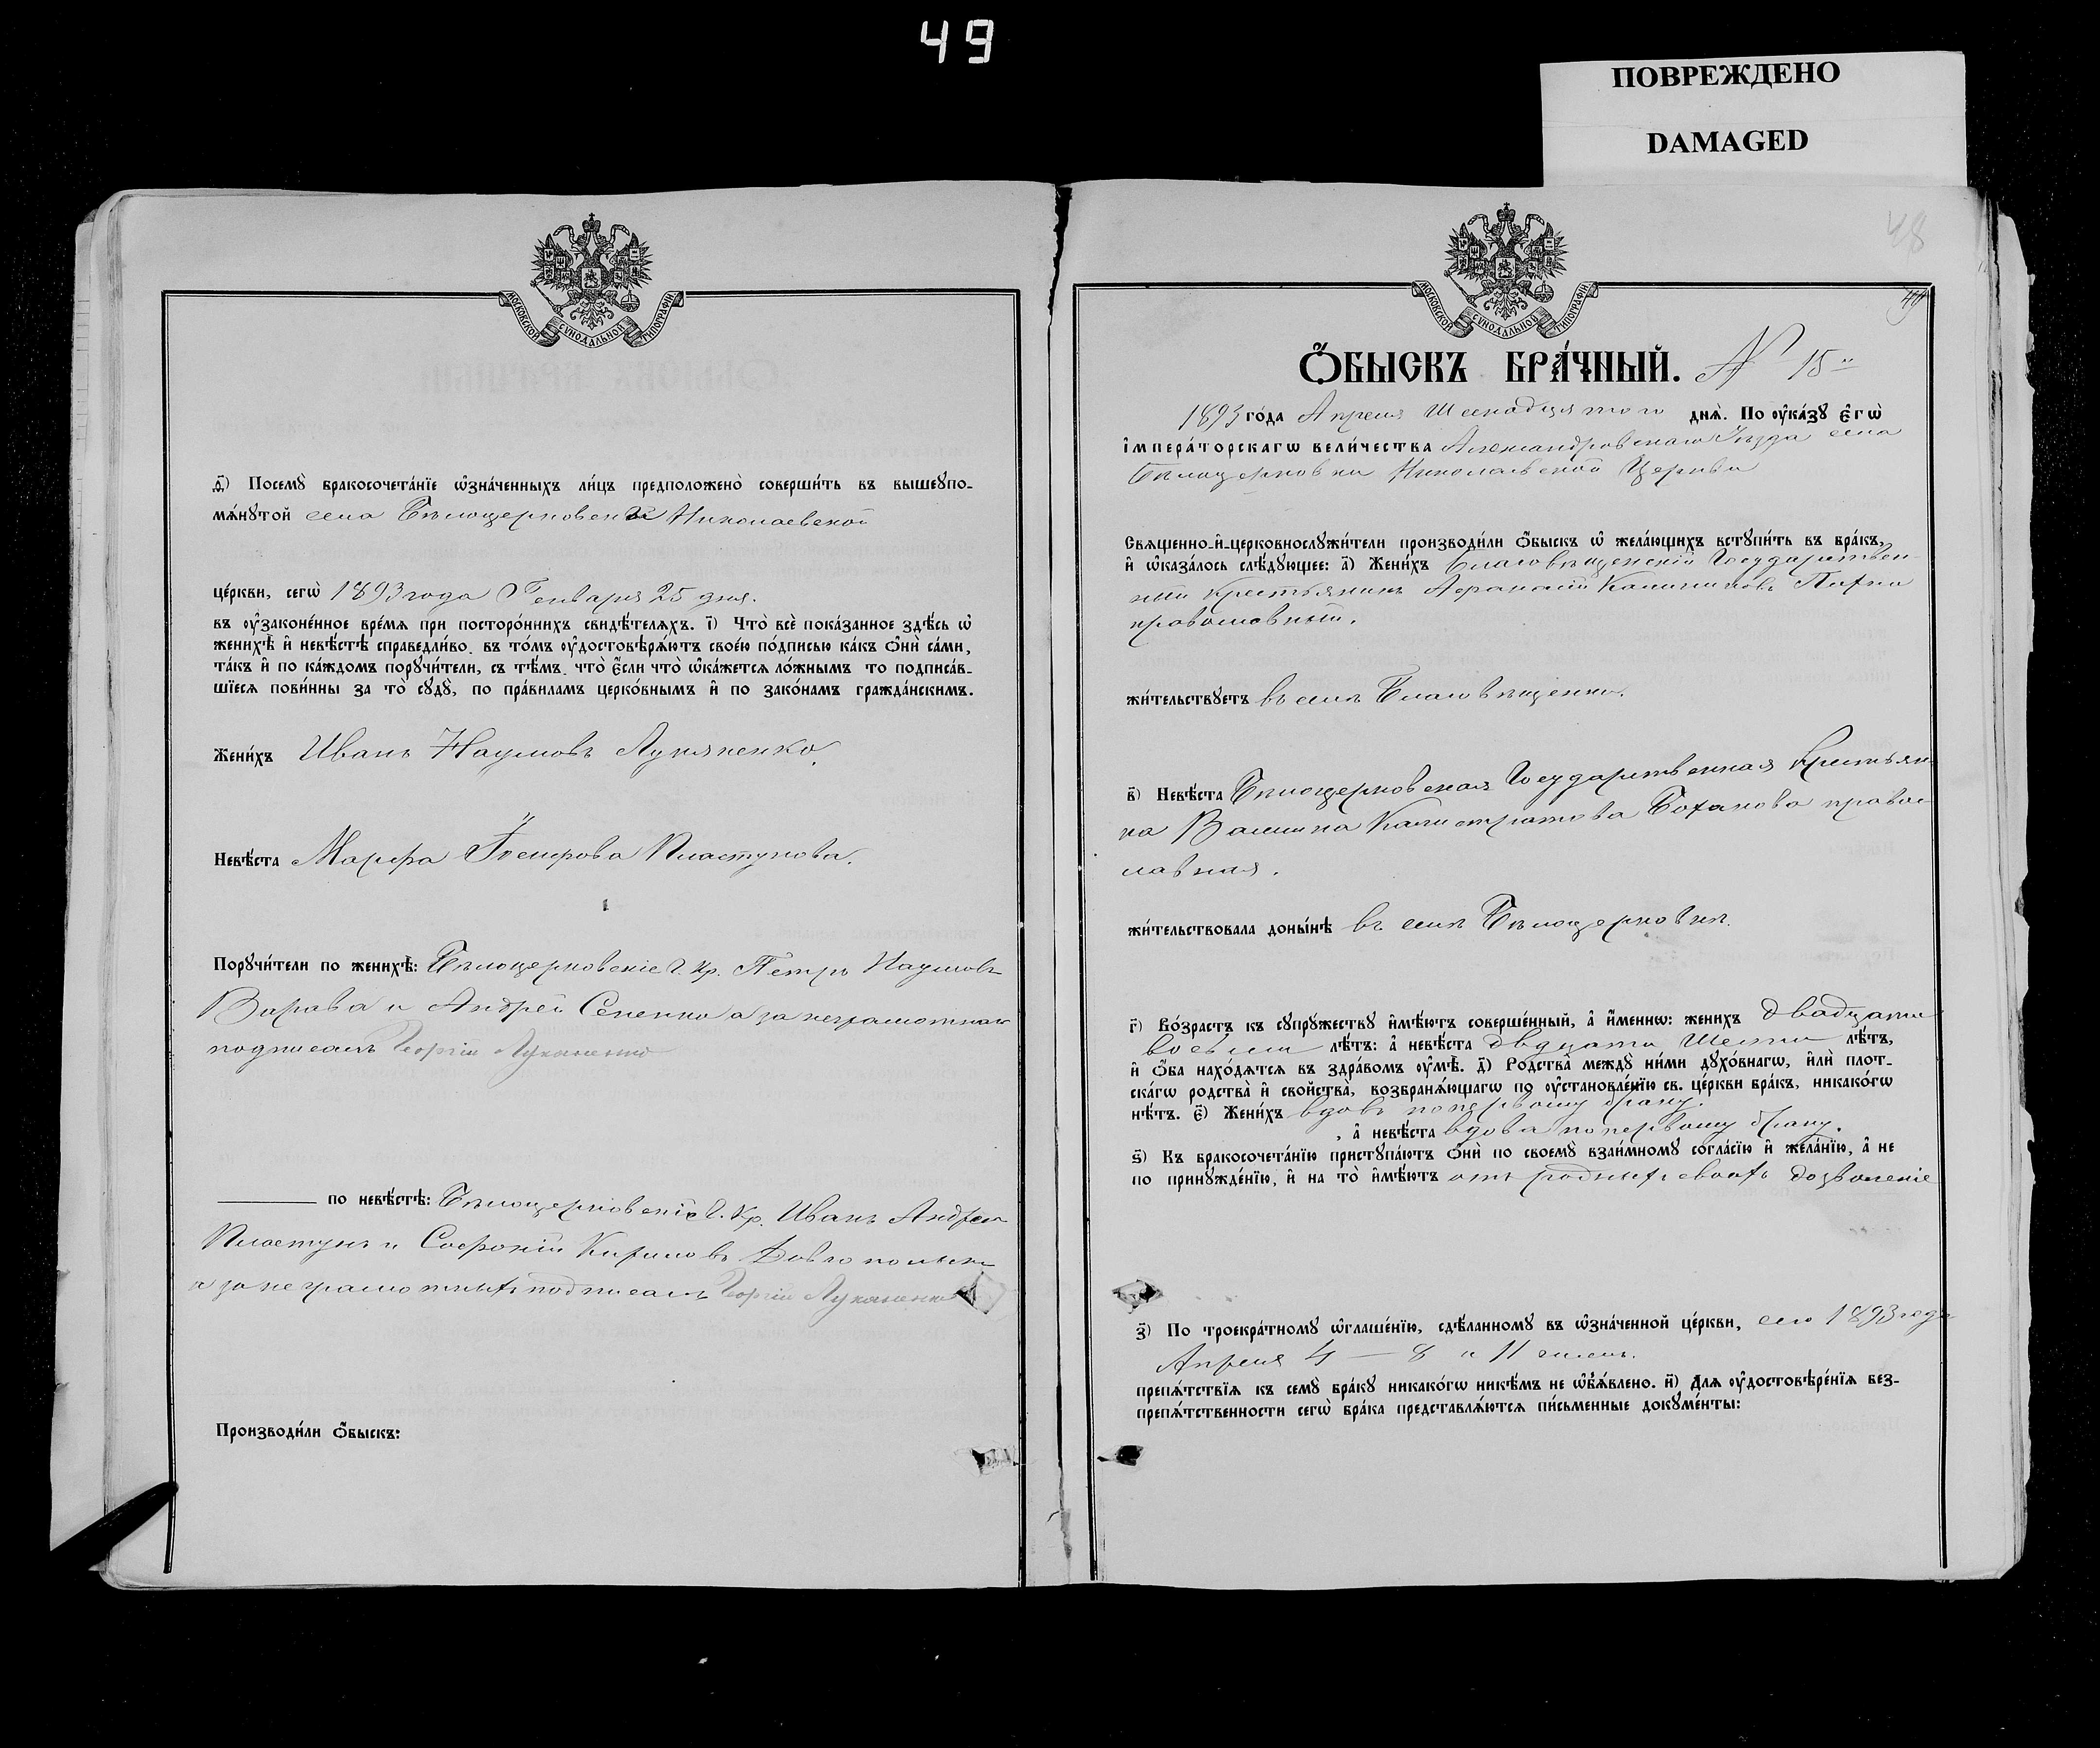 49
ПОВРЕЖДЕНО
DAMAGED
МОСКОВСКОЙ СѴНОДАЛЬНОЙ ТИПОГРАФІИ
д҃) Посемꙋ̀ бракосочета́нїе ѡ҆зна́ченныхъ ли́цъ предположено̀ соверши́ть въ вышеупо-
мѧ́нꙋтой села Бѣлоцерковки Николаевской
це́ркви, сегѡ̀ 1893 года Генваря 25 дня.
въ ᲂу҆законе́нное вре́мѧ при посторо́ннихъ свидѣ́телѧхъ. і҃) Что̀ всѐ пока́занное здѣ́сь ѡ҆
женихѣ̀ и҆ невѣ́стѣ справедли́во. въ то́мъ ᲂу҆достовѣрѧ́ютъ свое́ю по́дписью ка́къ ѻ҆нѝ са́ми,
та́къ и҆ по ка́ждомъ порꙋчи́тели, съ тѣ́мъ. что̀ є҆́сли что̀ ѡ҆ка́жетсѧ ло́жнымъ то подписа́в-
шїесѧ пови́нны за то̀ сꙋдꙋ̀, по пра́виламъ церко́внымъ и҆ по зако́намъ гражда́нскимъ.
Жени́хъ Иванъ Наумовъ Лукяненко.
Невѣ́ста Марфа Пластунова.
Порꙋчи́тели по женихѣ̀: Бѣлоцерковскіе Г. Кр. Петръ Наумовъ
Варава и Андрей Сененко а за неграмотных
подписалъ Георгій Луканенко
по невѣ́стѣ: Бѣлоцерковскіе Г. Кр. Иванъ Андреев
Пластунъ и Софроній Кириловъ
а за неграмотныхъ подписалъ Георгій Луканенко
Производи́ли ѻ҆́быскъ:
48
49
МОСКОВСКОЙ СѴНОДАЛЬНОЙ ТИПОГРАФІИ
Ѻ҆́БЫСКЪ БРА́ЧНЫЙ. № 15
1893 го́да Апреля Шеснадцятого днѧ̀. По ᲂу҆ка́зꙋ є҆гѡ̀
і҆мпера́торскагѡ вели́чества Александровскаго Уѣзда села
Бѣлоцерковки Николаевской Церкви
Свѧщенно-и҆-церковнослꙋжи́тели производи́ли ѻ҆́быскъ ѡ҆ жела́ющихъ встꙋпи́ть въ бра́къ,
и҆ ѡ҆каза́лось слѣ́дꙋющее: а҃) Жени́хъ Благовѣщенскій Государствен-
ный крестьянинъ Афанасій Калиниковъ
православный.
жи́тельствꙋетъ въ селѣ Благовѣщенки.
в҃) Невѣ́ста Бѣлоцерковская Государственная Крестьян-
ка Васшна Калистратова Боханова правос-
лавная.
жи́тельствовала доны́нѣ въ селѣ Бѣлоцерковкѣ.
г҃) Во́зрастъ къ сꙋпрꙋ́жествꙋ и҆мѣ́ютъ соверше́нный, а҆ и҆́меннѡ: жени́хъ двадцати
восьми лѣ́тъ: а҆ невѣ́ста двдцати Шести лѣ́тъ,
и҆ ѻ҆́ба нахо́дѧтсѧ въ здра́вомъ ᲂу҆мѣ̀. д҃) Родства̀ междꙋ̀ ни́ми дꙋхо́внагѡ, и҆лѝ плот-
ска́гѡ родства̀ и҆ свойства̀, возбранѧ́ющагѡ по ᲂу҆становле́нїю св. це́ркви бра́къ, никако́гѡ
нѣ́тъ. є҃) Жени́хъ вдовъ по первому браку.
, а҆ невѣ́ста вдова по первому браку.
ѕ҃) Къ бракосочета́нїю пристꙋпа́ютъ ѻ҆нѝ по своемꙋ̀ взаи́мномꙋ согла́сїю и҆ жела́нїю, а҆ не
по принꙋжде́нїю, и҆ на то̀ и҆мѣ́ютъ отъ родныхъ своихъ дозволеніе
з҃) По троекра́тномꙋ ѡ҆глаше́нїю, сдѣ́ланномꙋ въ ѡ҆зна́ченной це́ркви, сего 1893 года
Апреля 4 — 8 и 11 числъ.
препѧ́тствїѧ къ семꙋ̀ бра́кꙋ никако́гѡ никѣ́мъ не ѡ҆б̾ѧ́влено. и҃) Длѧ ᲂу҆достовѣре́нїѧ без-
препѧ́тственности сегѡ̀ бра́ка представлѧ́ютсѧ пи́сьменные докꙋме́нты: